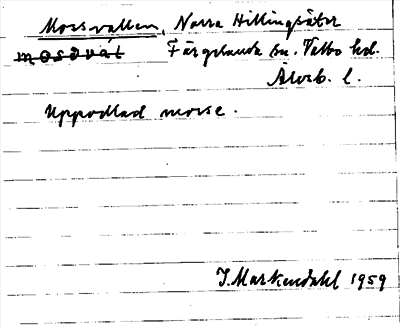 Mossvallen, Norra Hillingsäter
mosavál Färgelanda sn. Valbo hd.
Älvsb. l.
Uppodlad mosse.
J. Markendahl 1959